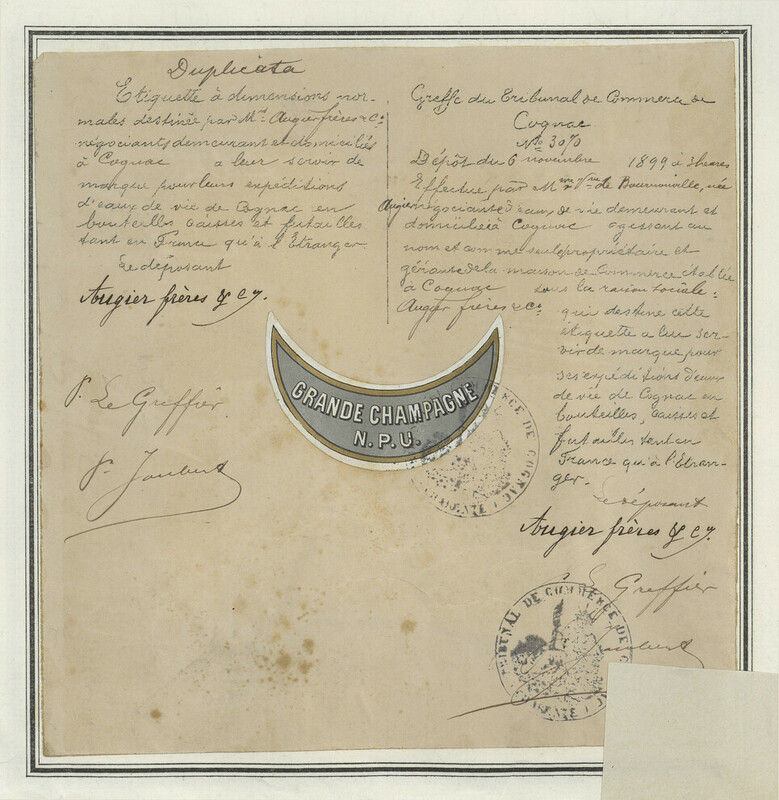 Duplicata
Etiquette à dimensions nor-
males destinée par Mrs Augier frères & Co
négociants demeurant et domiciliés
à Cognac a leur servir de
marque pour leurs expéditions
d'eaux de vie de Cognac en
bouteilles caisses et futailles
tant en France qu'à l'Etranger
Le déposant
Augier frères & Cy.
P. Le Greffier
P. Joubert
Greffe du Tribunal de Commerce de
Cognac
No 3070
Dépôt du 6 novembre 1899 à 3 heures
Effectué par Mme Vve de Bournonville, née
Augier négociante d'eaux de vie demeurant et
domiciliée à Cognac agissant au
nom et comme seule propriétaire et
gérante de la maison de Commerce établie
à Cognac sous la raison sociale:
Augier frères & Co
qui destine cette
étiquette a lui ser-
vir de marque pour
ses expéditions d'eaux
de vie de Cognac en
bouteilles, caisses et
futailles tant en
France qu'à l'Etran-
ger.
Le déposant
Augier frères & Cy.
Le Greffier
Joubert
GRANDE CHAMPAGNE
N.P.U.
COMMERCE DE COGNAC
CHARENTE
TRIBUNAL DE COMMERCE DE COGNAC
CHARENTE